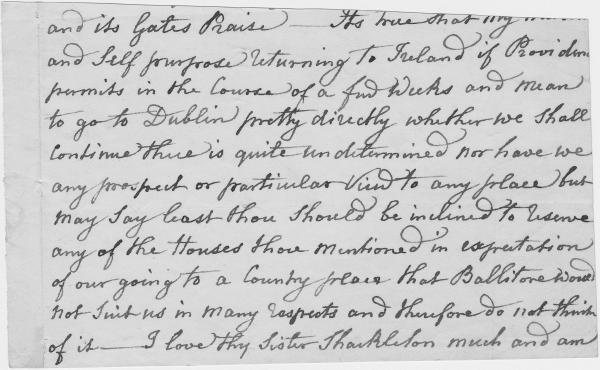 and its Gates Praise — Its true that my
and Self purpose returning to Ireland if Providen
permits in the Course of a few Weeks and mean
to go to Dublin pretty directly whether we Shall
Continue there is quite undetermined nor have we
any prospect or particular View to any place but
may Say least thou Should be inclined to reserve
any of the Houses thou mentioned in expectation
of our going to a Country place that Ballitore would
not Suit us in many respects and therefore do not think
of it — I love thy Sister Shackleton much and am